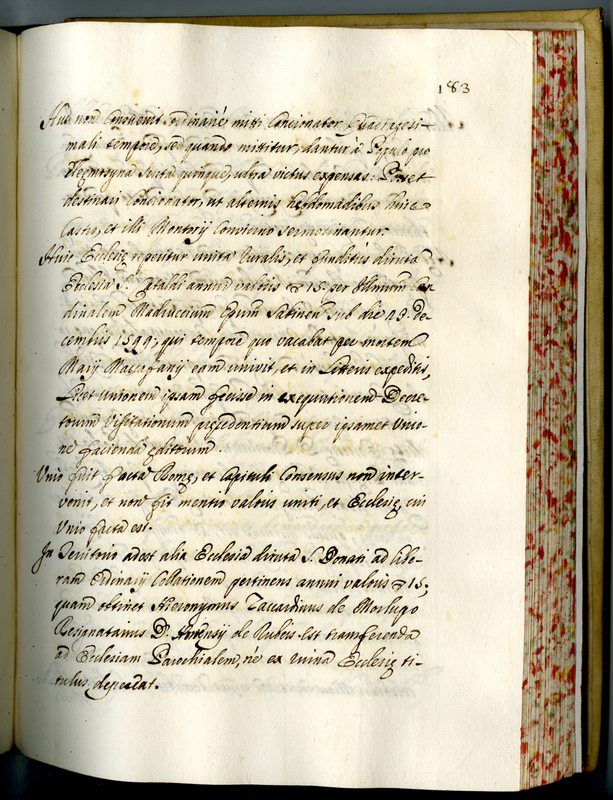 183
Huc non convenit ordinarie mitti Concionator Quadragesi-
mali tempore, sed quando mittitur, dantur à Populo pro
Elemosyna scuta quinque, ultra victus expensas: Posset
destinari Concionator, ut alternis hebdomadibus huic
Castro, et illi Montorij Convicino sermocinantur.
Huic Ecclesię reperitur unita Ruralis, et funditus diruta
Ecclesia S. Cataldi annui valoris 15. per Illmum Car
dinalem Madruccium Epum Sabinen sub die 23. De-
cembris 1599, qui tempore quo vacabat per mortem
Marij eam univit, et in Litteris expeditis,
Licet unionem ipsam fecisse in exequutionem Decre-
torum Visitationum pręcedentium super ipsamet Unio-
ne facienda ęditorum.
Unio fuit facta Romę, et Capituli Consensus non inter-
venit, et non fit mentio valoris uniti, et Ecclesię, cui
Unio facta est.
In Territorio adest alia Ecclesia diruta S. Donati ad libe-
ram Ordinarij Collationem pertinens annui valoris 15,
quam obtinet Hieronymus de Morlupo
Resignatarius D. Hortensij de Rubeis est transferenda
ad Ecclesiam Parochialem, ne ex ruina Ecclesię ti-
tulus depereat.